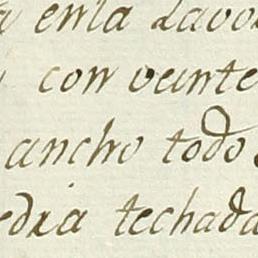 enla Lavo
con veinte
ancho todo
edra techada